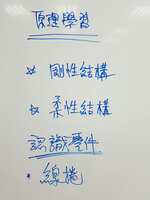 原理學習
* 剛性結構
* 柔性結構
認識零件
* 線捲